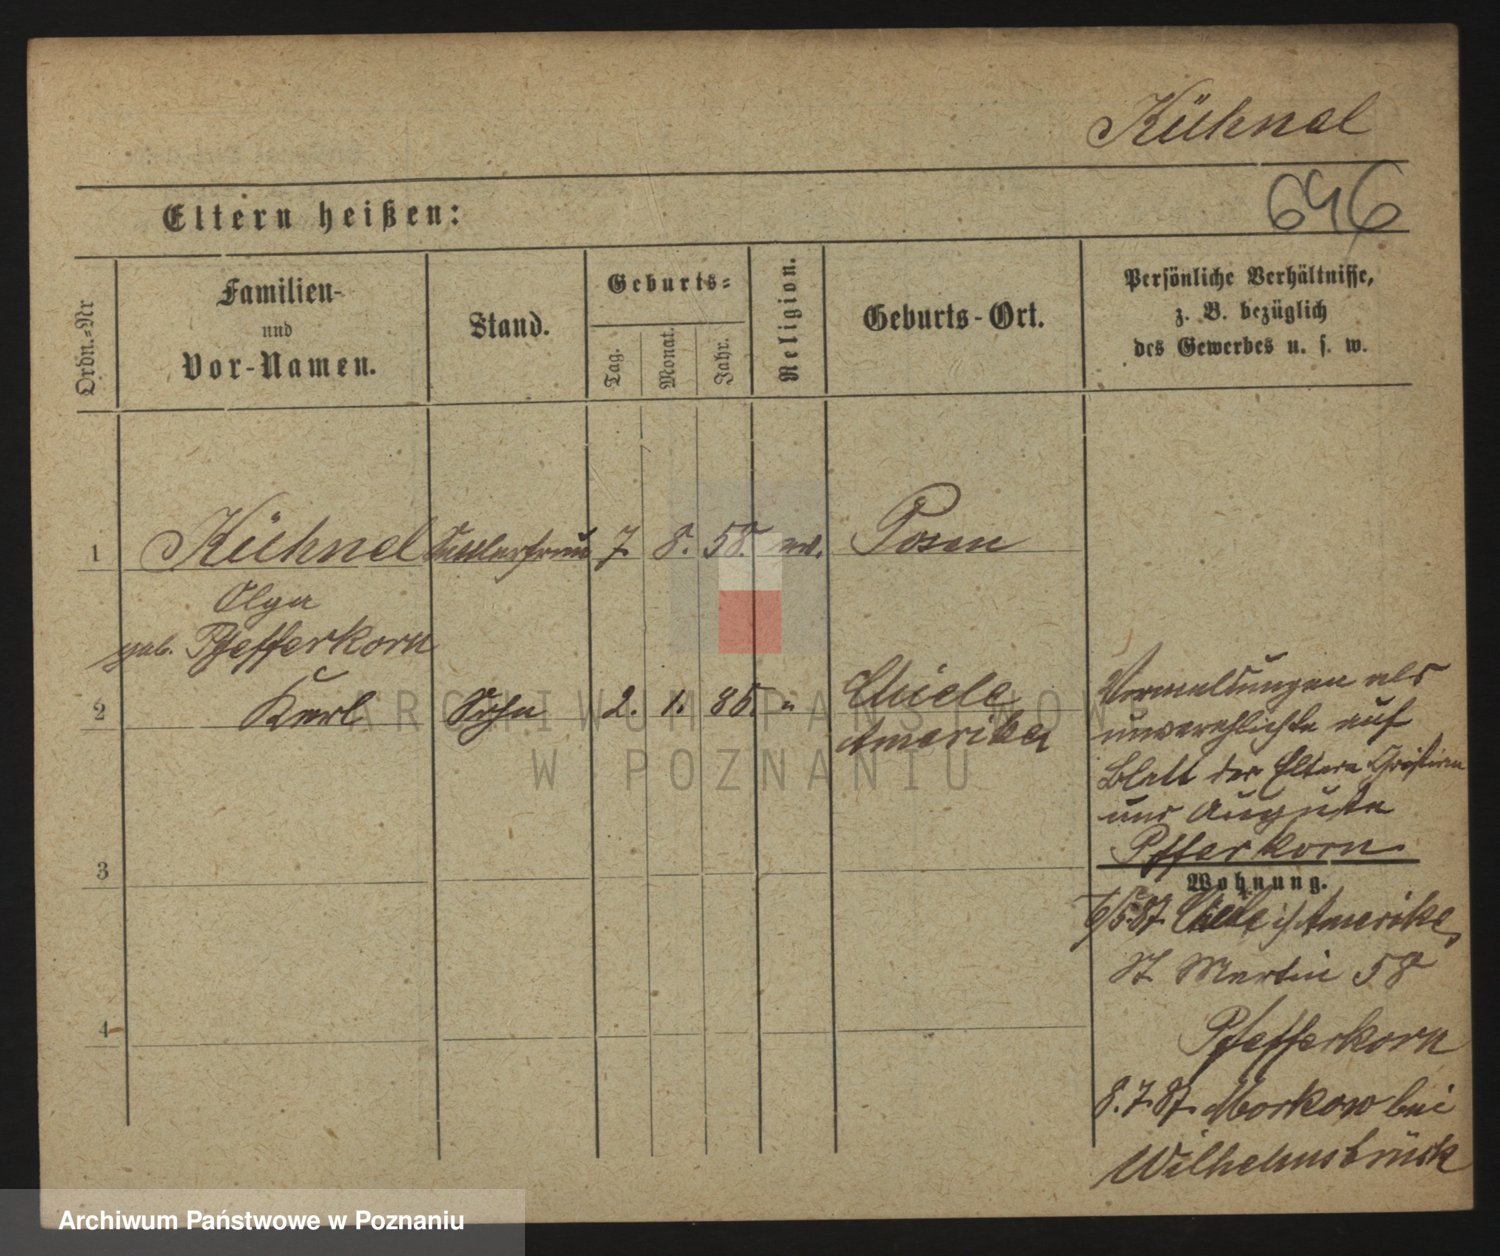 Kühnel
646
Eltern heißen:
Ordn.-Nr
Familien-
und
Vor-Namen.
Stand.
Geburts-
Tag.
Monat.
Jahr.
Religion.
Geburts-Ort.
Persönliche Verhältnisse,
z. B. bezüglich
des Gewerbes u. s. w.
1 Kühnel Sattlerfrau 7 8. 58. ev. Posen
Olga
geb. Pfefferkorn
2 Karl Sohn 2. 1. 86. "
Amerika
Vermeldungen als
unverehlichte auf
Blatt der Eltern
und Auguste
Pfefferkorn.
3
Wohnung.
6/5 87. i/Amerika,
St Martin 58
4
Pfefferkorn
8. 7. 87. Morkow bei
Wilhelmsbrück
ARCHIWUM PAŃSTWOWE
W POZNANIU
Archiwum Państwowe w Poznaniu